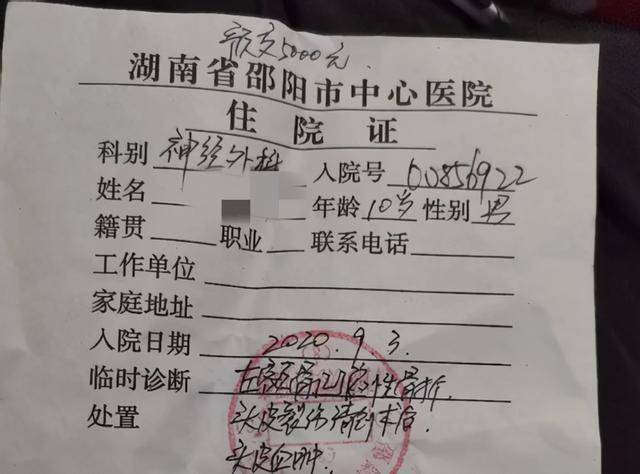 预交5000元
湖南省邵阳市中心医院
住院证
科别 神经外科 入院号 00856922
姓名 年龄 10岁 性别 男
籍贯 职业 联系电话
工作单位
家庭地址
入院日期 2020.9.3.
临时诊断 左额骨凹陷性骨折.
处置 头皮裂伤清创术后.
头皮血肿.